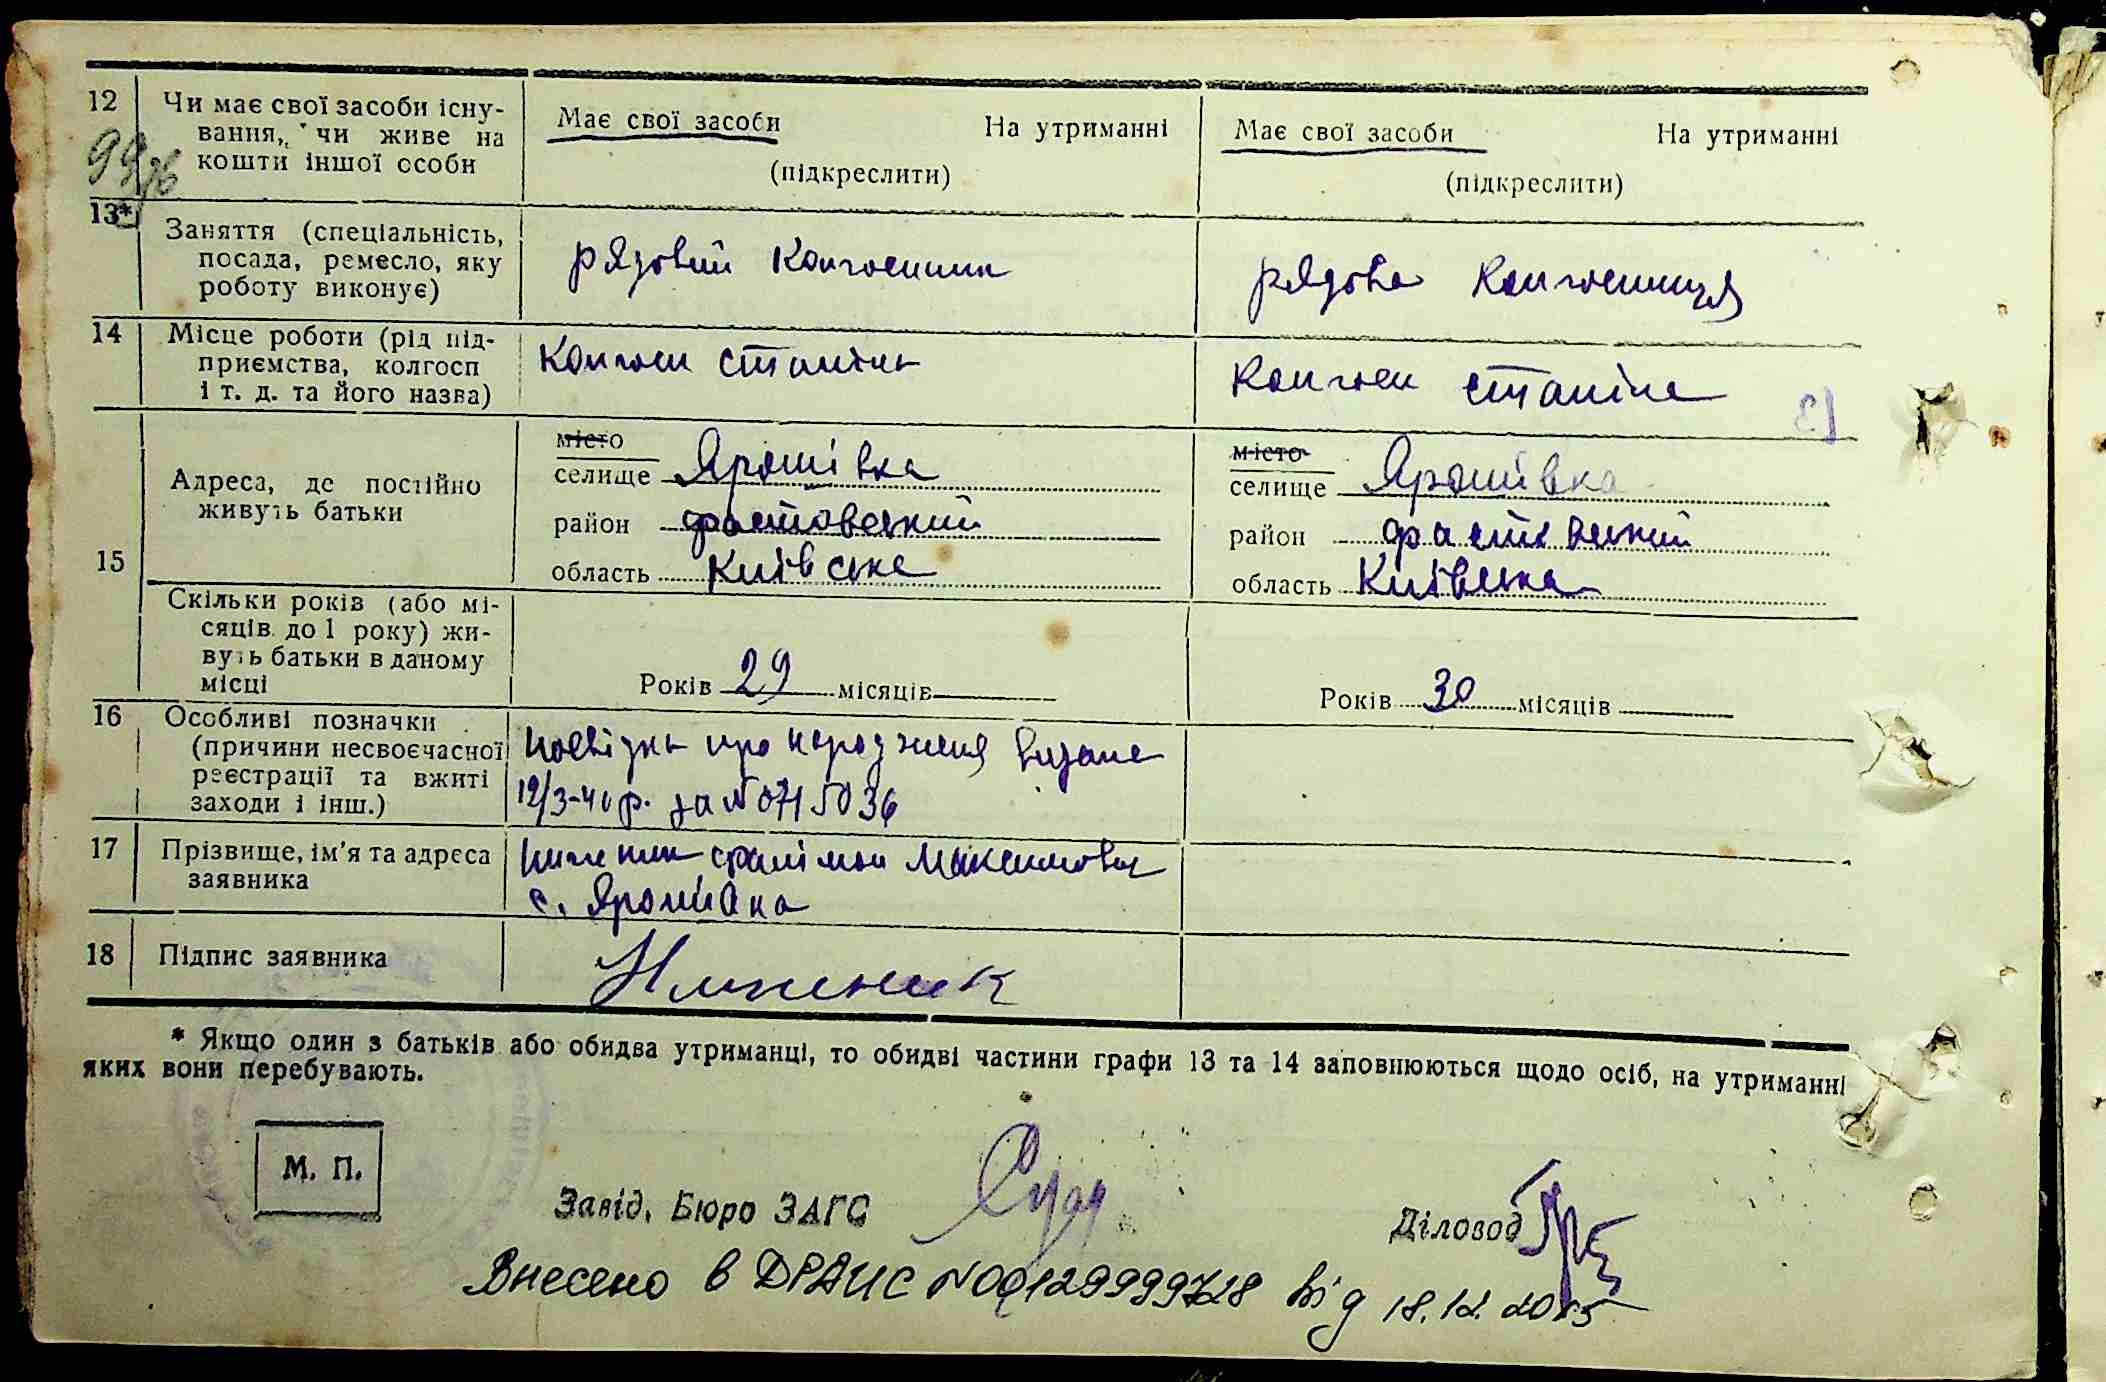 12
Чи має свої засоби існу-
вання, чи живе на
кошти іншої особи
Має свої засоби На утриманні
(підкреслити)
Має свої засоби На утриманні
(підкреслити)
13*
Заняття (спеціальність,
посада, ремесло, яку
роботу виконує)
рядовий колгоспник
рядова колгоспниця
14
Місце роботи (рід під-
приємства, колгосп
і т. д. та його назва)
колгосп сталіна
колгосп сталіна
15
Адреса, де постійно
живуть батьки
місто
селище Ярошівка
район фастовський
область Київська
місто
селище Ярошівка
район фастівський
область Київська
Скільки років (або мі-
сяців до 1 року) жи-
вуть батьки в даному
місці
Років 29 місяців
Років 30 місяців
16
Особливі позначки
(причини несвоєчасної
реєстрації та вжиті
заходи і інш.)
посвідка про народження видана
12/3-40 р. за №
17
Прізвище, ім'я та адреса
заявника
Максимович
с. Ярошівка
18
Підпис заявника
* Якщо один з батьків або обидва утриманці, то обидві частини графи 13 та 14 заповнюються щодо осіб, на утриманні
яких вони перебувають.
М. П.
Завід. Бюро ЗАГС
Діловод
Внесено в ДРАЦС № 00129999728 від 18.12.2015